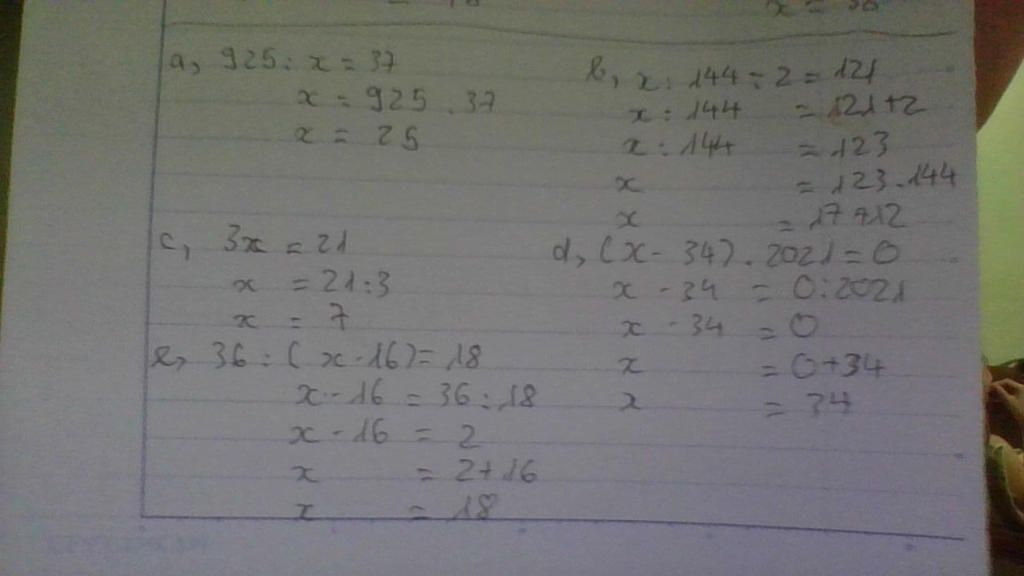 x = 36
a, 925 : x = 37
x = 925 . 37
x = 25
b, x : 144 - 2 = 121
x : 144 = 121 + 2
x : 144 = 123
x = 123 . 144
x = 17712
c, 3x = 21
x = 21 : 3
x = 7
d, (x - 34) . 2021 = 0
x - 34 = 0 : 2021
x - 34 = 0
x = 0 + 34
x = 34
e, 36 : (x - 16) = 18
x - 16 = 36 : 18
x - 16 = 2
x = 2 + 16
x = 18